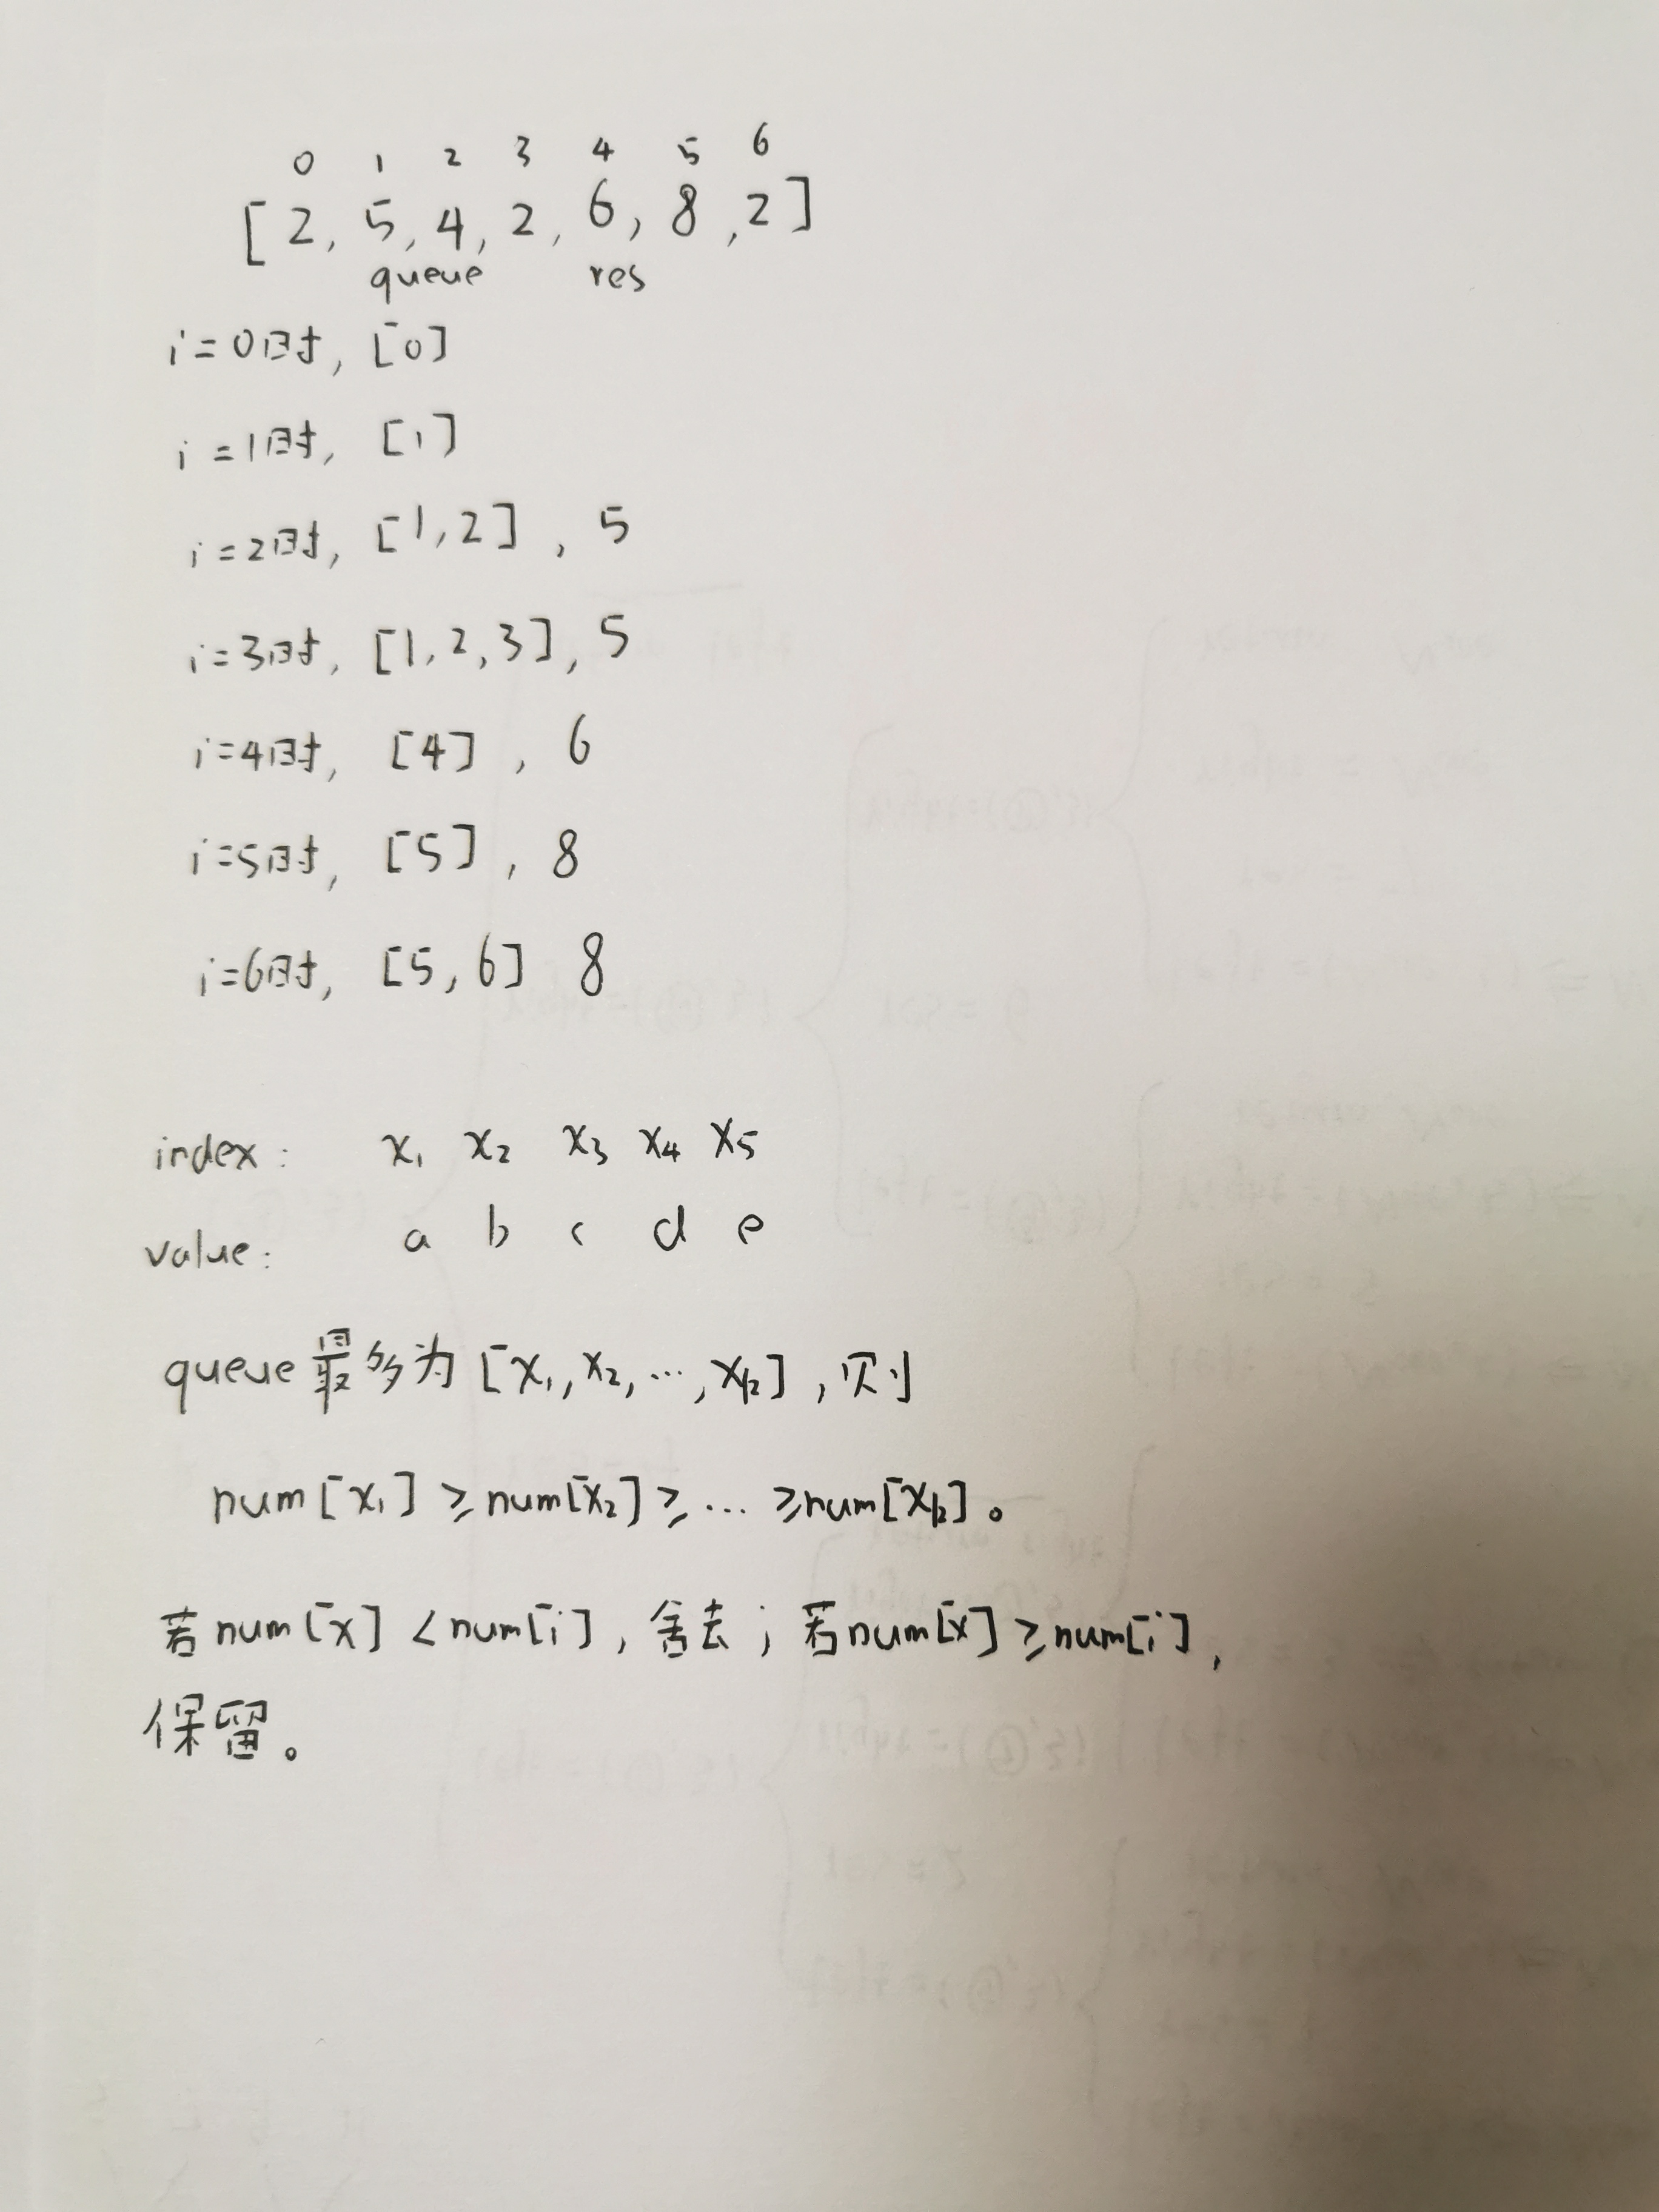 0 1 2 3 4 5 6
[2, 5, 4, 2, 6, 8, 2]
queue res
i=0时, [0]
i=1时, [1]
i=2时, [1,2], 5
i=3时, [1,2,3], 5
i=4时, [4], 6
i=5时, [5], 8
i=6时, [5,6] 8
index: x₁ x₂ x₃ x₄ x₅
value: a b c d e
queue最多为[x₁,x₂,…,xk],则
num[x₁]≥num[x₂]≥…≥num[xk]。
若num[x]<num[i],舍去;若num[x]≥num[i],
保留。